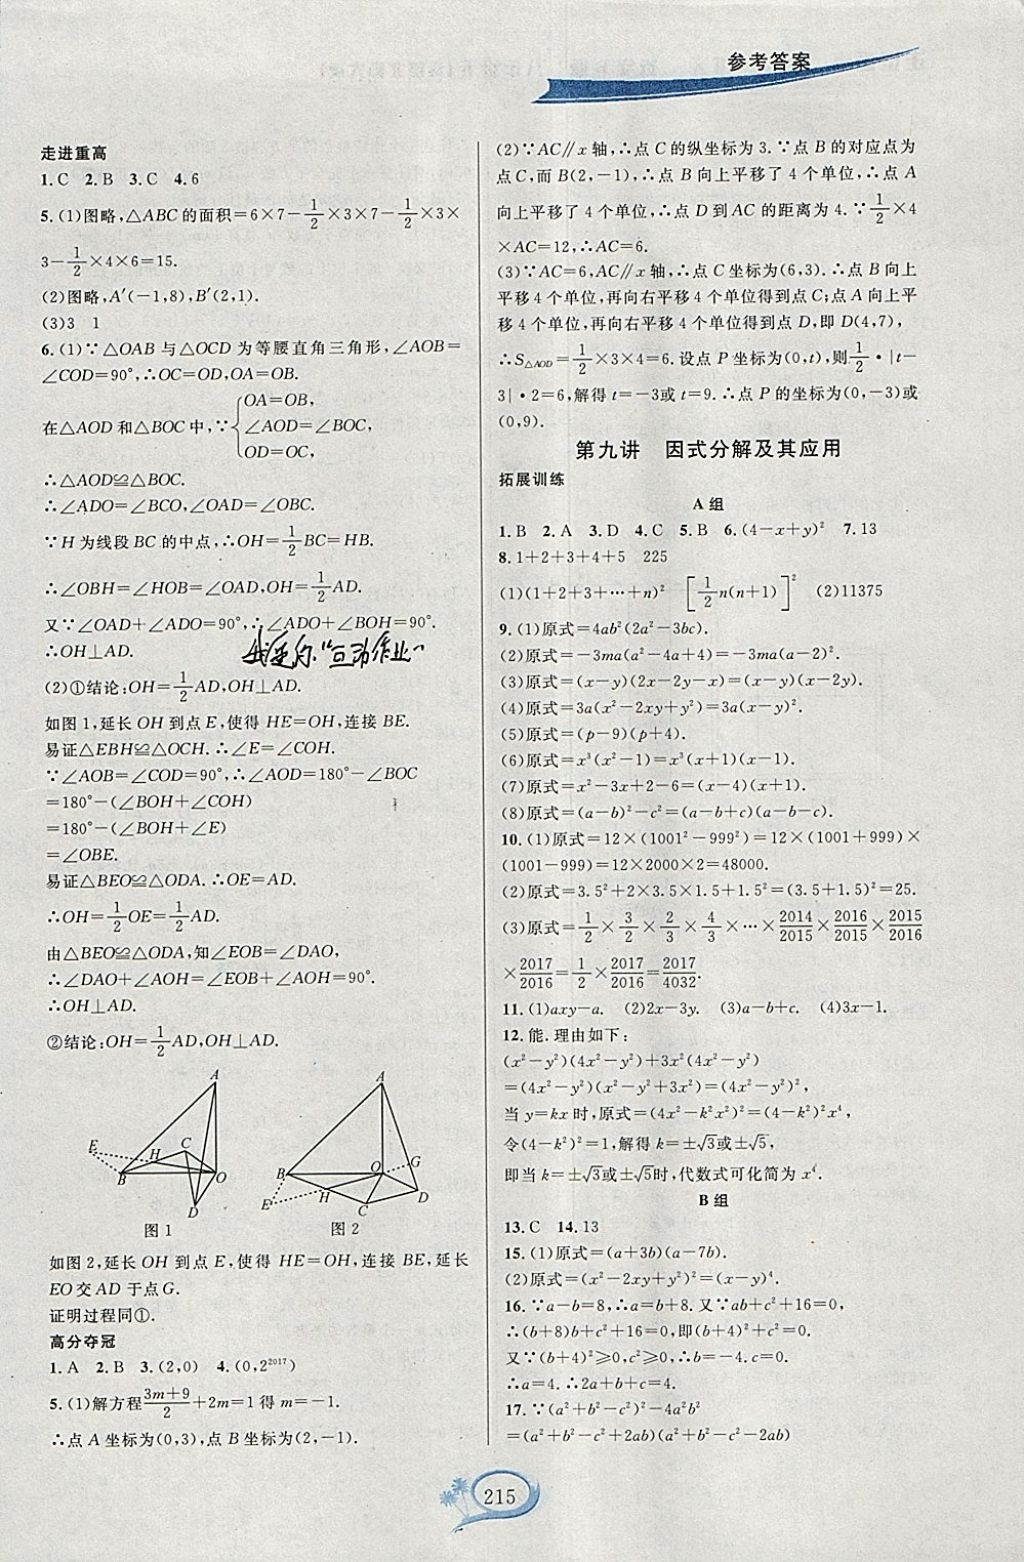 参考答案
走进重高
1.C 2.B 3.C 4.6
5.(1)图略,△ABC的面积=6×7-1/2×3×7-1/2×3×
3-1/2×4×6=15.
(2)图略,A′(-1,8),B′(2,1).
(3)3 1
6.(1)∵△OAB与△OCD为等腰直角三角形,∠AOB=
∠COD=90°,∴OC=OD,OA=OB.
在△AOD和△BOC中,∵{OA=OB,
∠AOD=∠BOC,
OD=OC,
∴△AOD≌△BOC.
∴∠ADO=∠BCO,∠OAD=∠OBC.
∵H为线段BC的中点,∴OH=1/2BC=HB.
∴∠OBH=∠HOB=∠OAD,OH=1/2AD.
又∵∠OAD+∠ADO=90°,∴∠ADO+∠BOH=90°.
∴OH⊥AD.
(2)①结论:OH=1/2AD,OH⊥AD.
如图1,延长OH到点E,使得HE=OH,连接BE.
易证△EBH≌△OCH.∴∠E=∠COH.
∵∠AOB=∠COD=90°,∴∠AOD=180°-∠BOC
=180°-(∠BOH+∠COH)
=180°-(∠BOH+∠E)
=∠OBE.
易证△BEO≌△ODA.∴OE=AD.
∴OH=1/2OE=1/2AD.
由△BEO≌△ODA,知∠EOB=∠DAO,
∴∠DAO+∠AOH=∠EOB+∠AOH=90°.
∴OH⊥AD.
②结论:OH=1/2AD,OH⊥AD.
A
E
C
H
B
O
D
图1
A
B
O
G
E
H
C
D
图2
如图2,延长OH到点E,使得HE=OH,连接BE,延长
EO交AD于点G.
证明过程同①.
高分夺冠
1.A 2.B 3.(2,0) 4.(0,2²⁰¹⁷)
5.(1)解方程(3m+9)/2+2m=1得m=-1.
∴点A坐标为(0,3),点B坐标为(2,-1).
(2)∵AC∥x轴,∴点C的纵坐标为3.∵点B的对应点为
点C,而B(2,-1),∴点B向上平移了4个单位,∴点A
向上平移了4个单位,∴点D到AC的距离为4.∵1/2×4
×AC=12,∴AC=6.
(3)∵AC=6,AC∥x轴,∴点C坐标为(6,3).∴点B向上
平移4个单位,再向右平移4个单位得到点C;点A向上平
移4个单位,再向右平移4个单位得到点D,即D(4,7),
∴S△AOD=1/2×3×4=6.设点P坐标为(0,t),则1/2·|t-
3|·2=6,解得t=-3或t=9.∴点P的坐标为(0,-3)或
(0,9).
第九讲 因式分解及其应用
拓展训练
A组
1.B 2.A 3.D 4.C 5.B 6.(4-x+y)² 7.13
8.1+2+3+4+5 225
(1)(1+2+3+⋯+n)² [1/2n(n+1)]² (2)11375
9.(1)原式=4ab²(2a²-3bc).
(2)原式=-3ma(a²-4a+4)=-3ma(a-2)².
(3)原式=(x-y)(2x-2y-x)=(x-y)(x-2y).
(4)原式=3a(x²-2xy+y²)=3a(x-y)².
(5)原式=(p-9)(p+4).
(6)原式=x³(x²-1)=x³(x+1)(x-1).
(7)原式=x²-3x+2-6=(x-4)(x+1).
(8)原式=(a-b)²-c²=(a-b+c)(a-b-c).
10.(1)原式=12×(1001²-999²)=12×(1001+999)×
(1001-999)=12×2000×2=48000.
(2)原式=3.5²+2×3.5×1.5+1.5²=(3.5+1.5)²=25.
(3)原式=1/2×3/2×2/3×4/3×⋯×2014/2015×2016/2015×2015/2016
×2017/2016=1/2×2017/2016=2017/4032.
11.(1)axy-a. (2)2x-3y. (3)a-b+c. (4)3x-1.
12.能.理由如下:
(x²-y²)(4x²-y²)+3x²(4x²-y²)
=(4x²-y²)(x²-y²+3x²)=(4x²-y²)²,
当y=kx时,原式=(4x²-k²x²)²=(4-k²)²x⁴,
令(4-k²)²=1,解得k=±√3或±√5,
即当k=±√3或±√5时,代数式可化简为x⁴.
B组
13.C 14.13
15.(1)原式=(a+3b)(a-7b).
(2)原式=(x²-2xy+y²)²=(x-y)⁴.
16.∵a-b=8,∴a=b+8.又∵ab+c²+16=0,
∴(b+8)b+c²+16=0,即(b+4)²+c²=0.
又∵(b+4)²≥0,c²≥0,∴b=-4.c=0.
∴a=4.∴a+b+c=4.
17.∵(a²+b²-c²)²-4a²b²
=(a²+b²-c²+2ab)(a²+b²-c²-2ab)
215